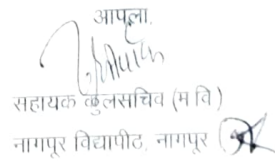 आपला,
सहायक कुलसचिव (म वि)
नागपूर विद्यापीठ, नागपूर